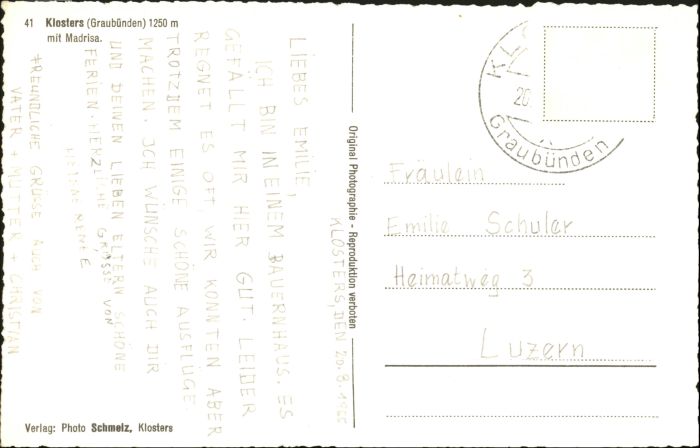 41 Klosters (Graubünden) 1250 m
mit Madrisa.
KLOSTERS, DEN 20. 8. 1955
LIEBES EMILIE,
ICH BIN IN EINEM BAUERNHAUS. ES
GEFÄLLT MIR HIER GUT. LEIDER
REGNET ES OFT, WIR KONNTEN ABER
TROTZDEM EINIGE SCHÖNE AUSFLÜGE
MACHEN. ICH WÜNSCHE AUCH DIR
UND DEINEN LIEBEN ELTERN SCHÖNE
FERIEN. HERZLICHE GRÜSSE VON
FREUNDLICHE GRÜSSE AUCH VON
VATER + MUTTER + CHRISTIAN
Verlag: Photo Schmelz, Klosters
Original Photographie - Reproduktion verboten
20.
Graubünden
Fräulein
Emilie Schuler
Heimatweg 3
Luzern